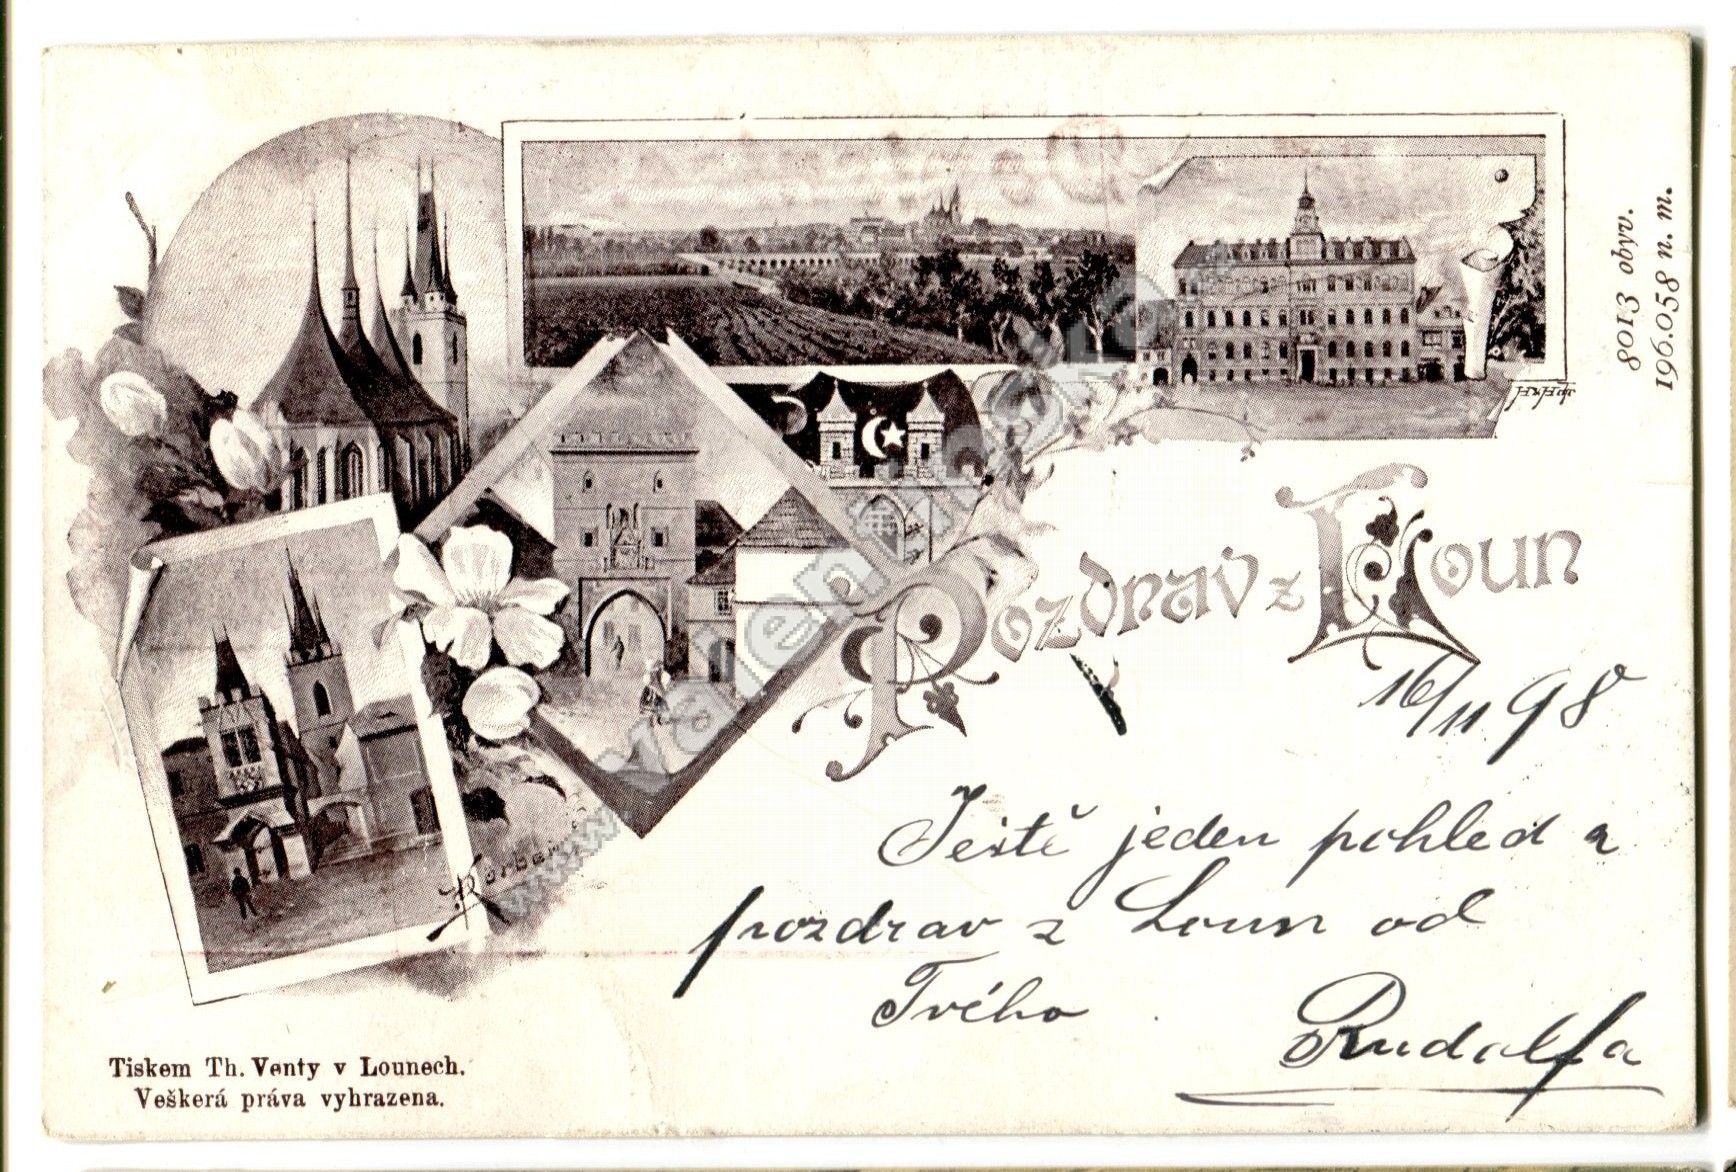 8013 obyv.
196.058 n. m.
Pozdrav z Loun
16/11 98
Ještě jeden pohled a
pozdrav z Loun od
Tvého
Rudolfa
Tiskem Th. Venty v Lounech.
Veškerá práva vyhrazena.